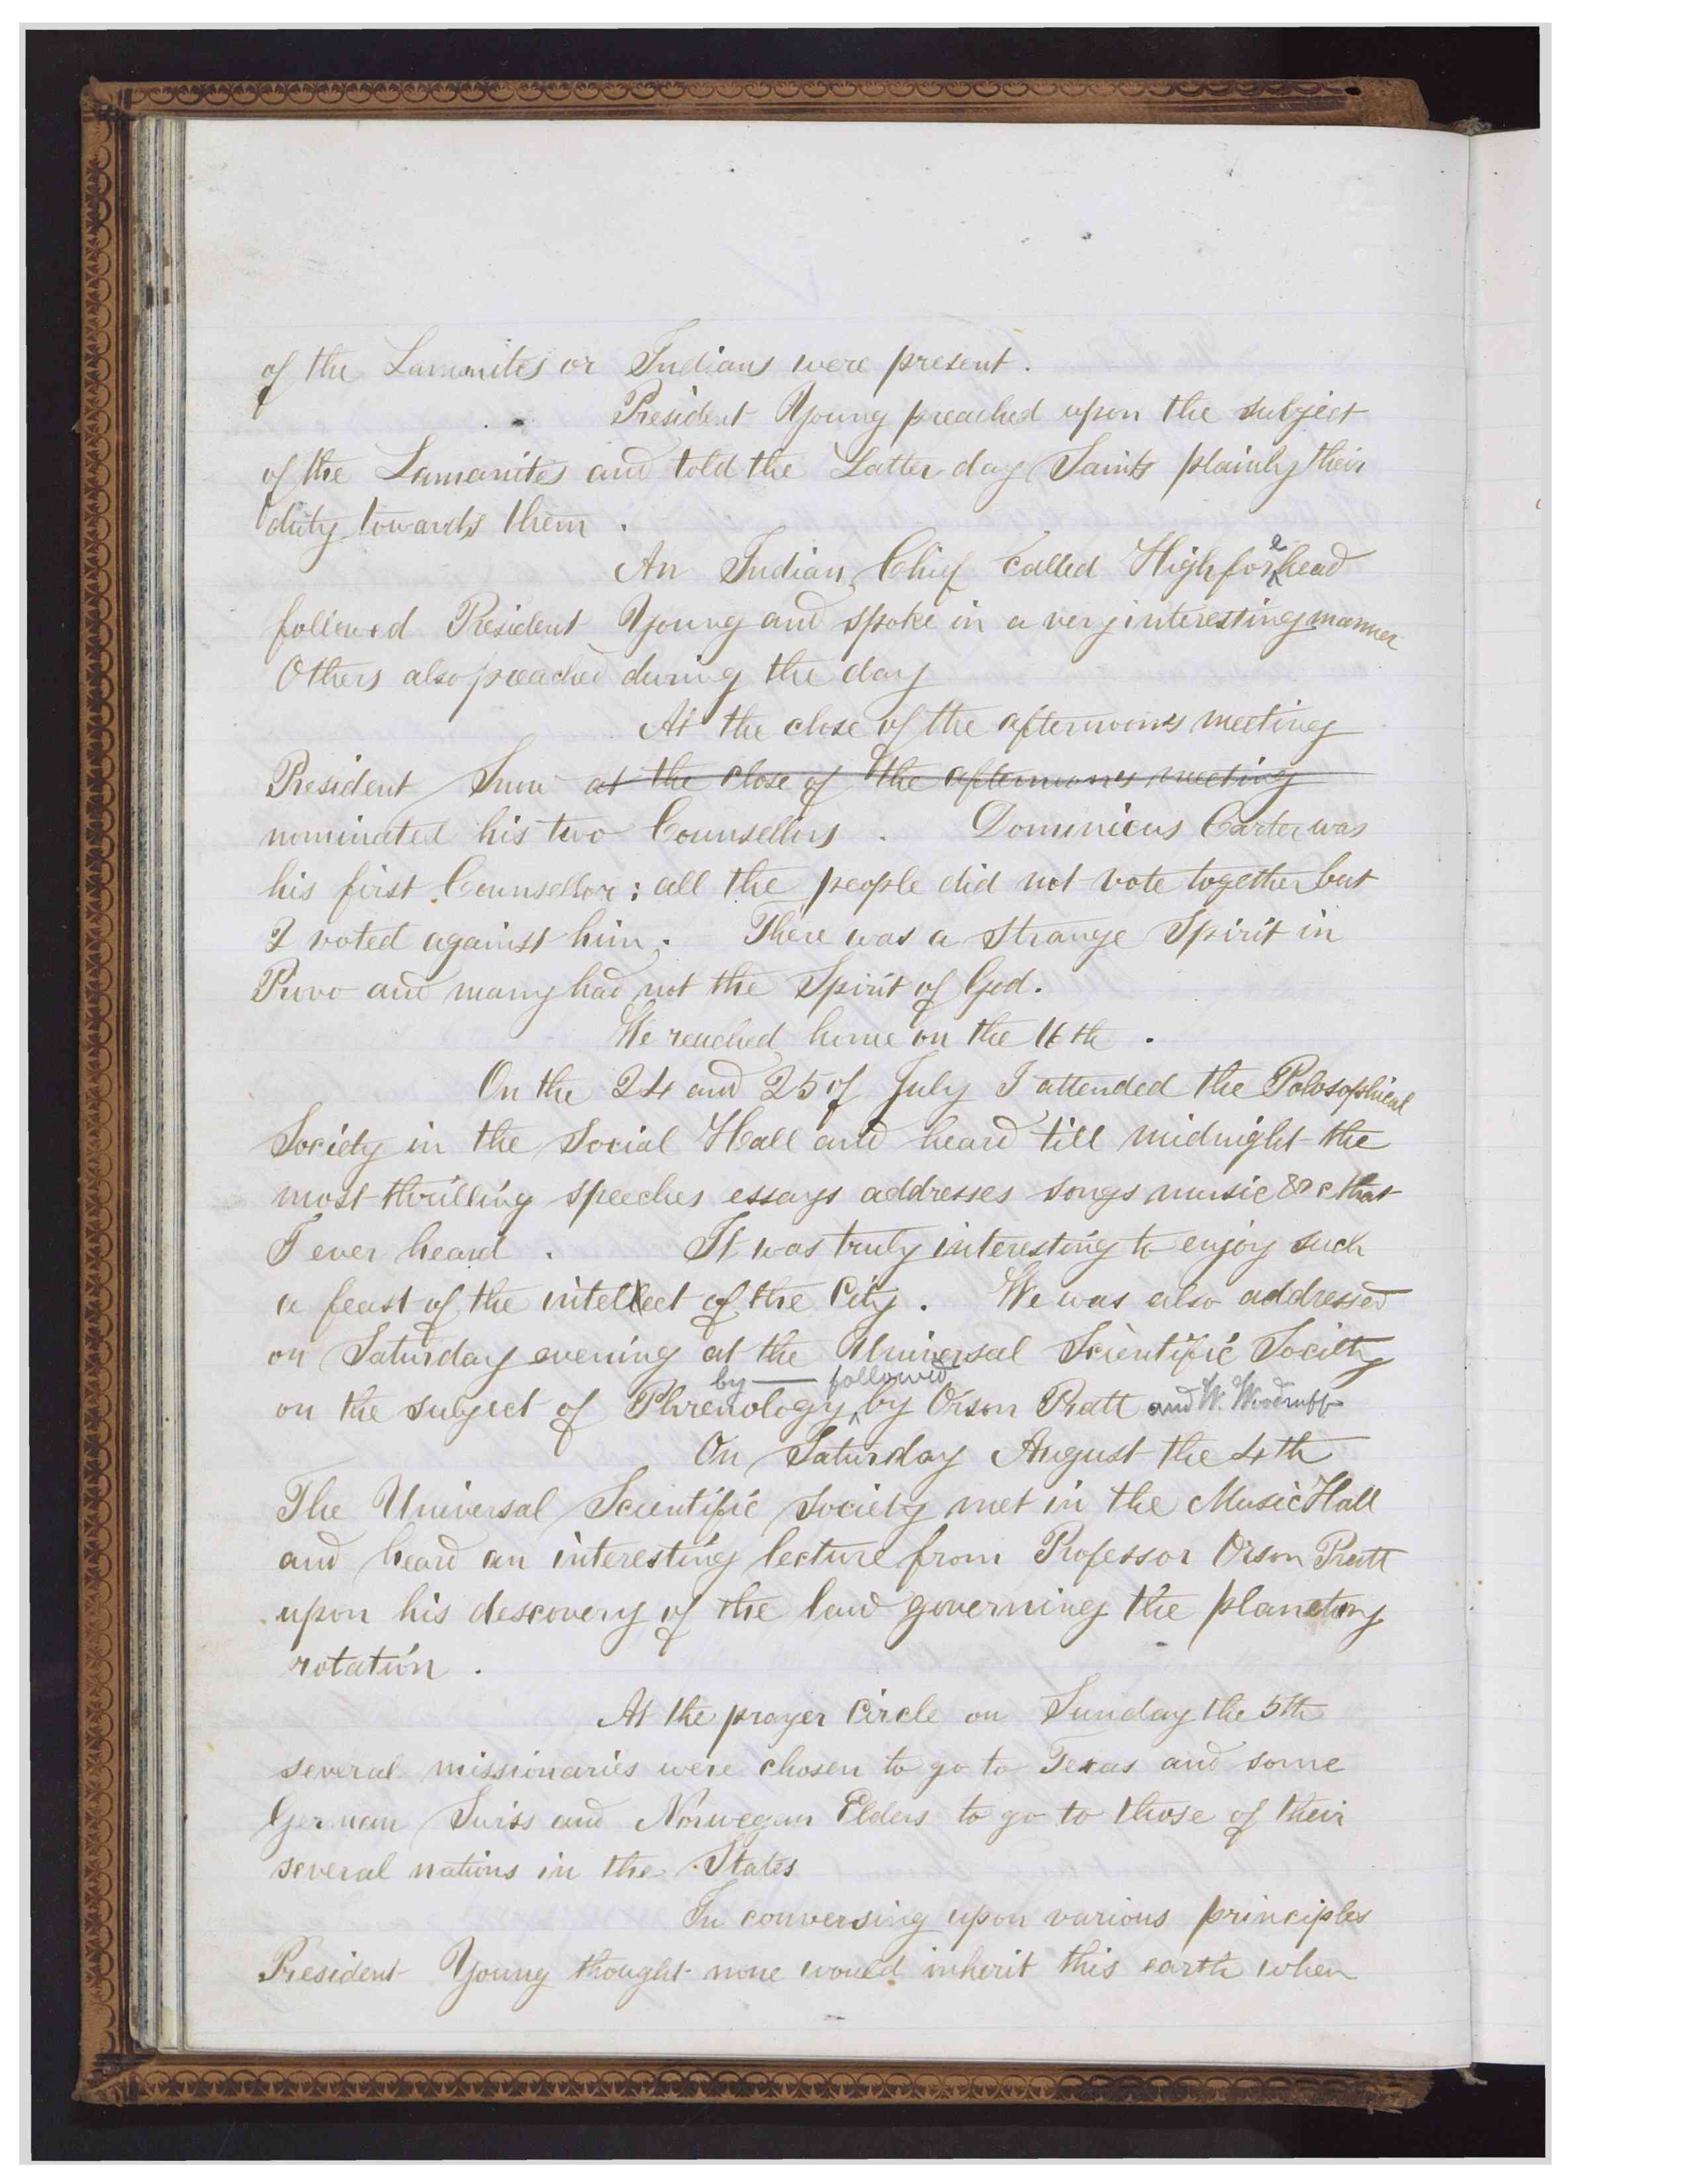 of the Lamanites or Indians were present.
President Young preached upon the subject
of the Lamanites and told the Latter day Saints plainly their
duty towards them.
An Indian Chief called Highforehead
followed President Young and spoke in a very interesting manner
Others also preached during the day
At the close of the afternoons meeting
President Snow at the close of the afternoons meeting
nominated his two Counsellors. Dominicus Carter was
his first Counsellor; all the people did not vote together but
I voted against him. There was a strange Spirit in
Provo and many had not the Spirit of God.
We reached home on the 16th.
On the 24 and 25 of July I attended the Polosophical
Society in the Social Hall and heard till midnight the
most thrilling speeches essays addresses songs music &c that
I ever heard. It was truly interesting to enjoy such
a feast of the intellect of the City. We was also addressed
on Saturday evening at the Universal Scientific Society
by — followed
on the subject of Phrenology by Orson Pratt and W. Woodruff
On Saturday August the 4th
The Universal Scientific Society met in the Music Hall
and heard an interesting lecture from Professor Orson Pratt
upon his descovery of the law governing the planetary
rotation.
At the prayer Circle on Sunday the 5th
several missionaries were chosen to go to Texas and some
German Swiss and Norwegan Elders to go to those of their
several nations in the States
In conversing upon various principles
President Young thought none would inherit this earth when